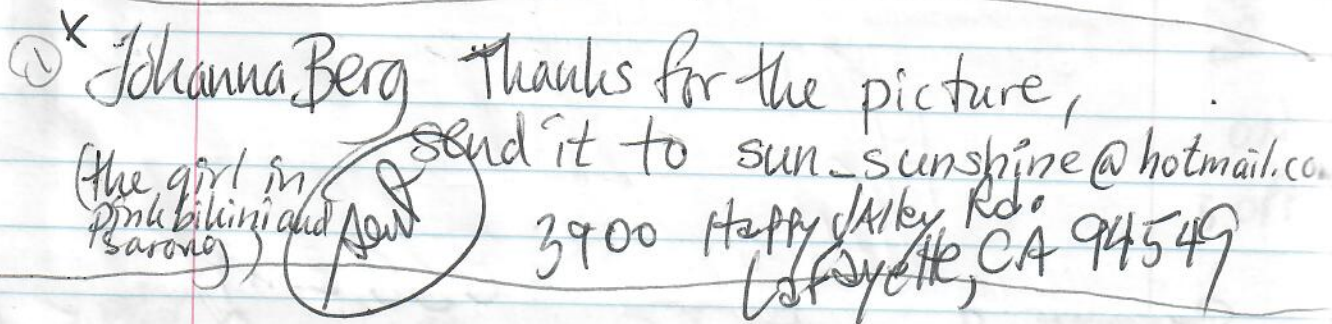 ① x Johanna Berg Thanks for the picture,
send it to sun_sunshine@hotmail.co
(the girl in
Pink bikini and
Sarong)
sent
3900 Happy Valley Rd.
Lafayette, CA 94549